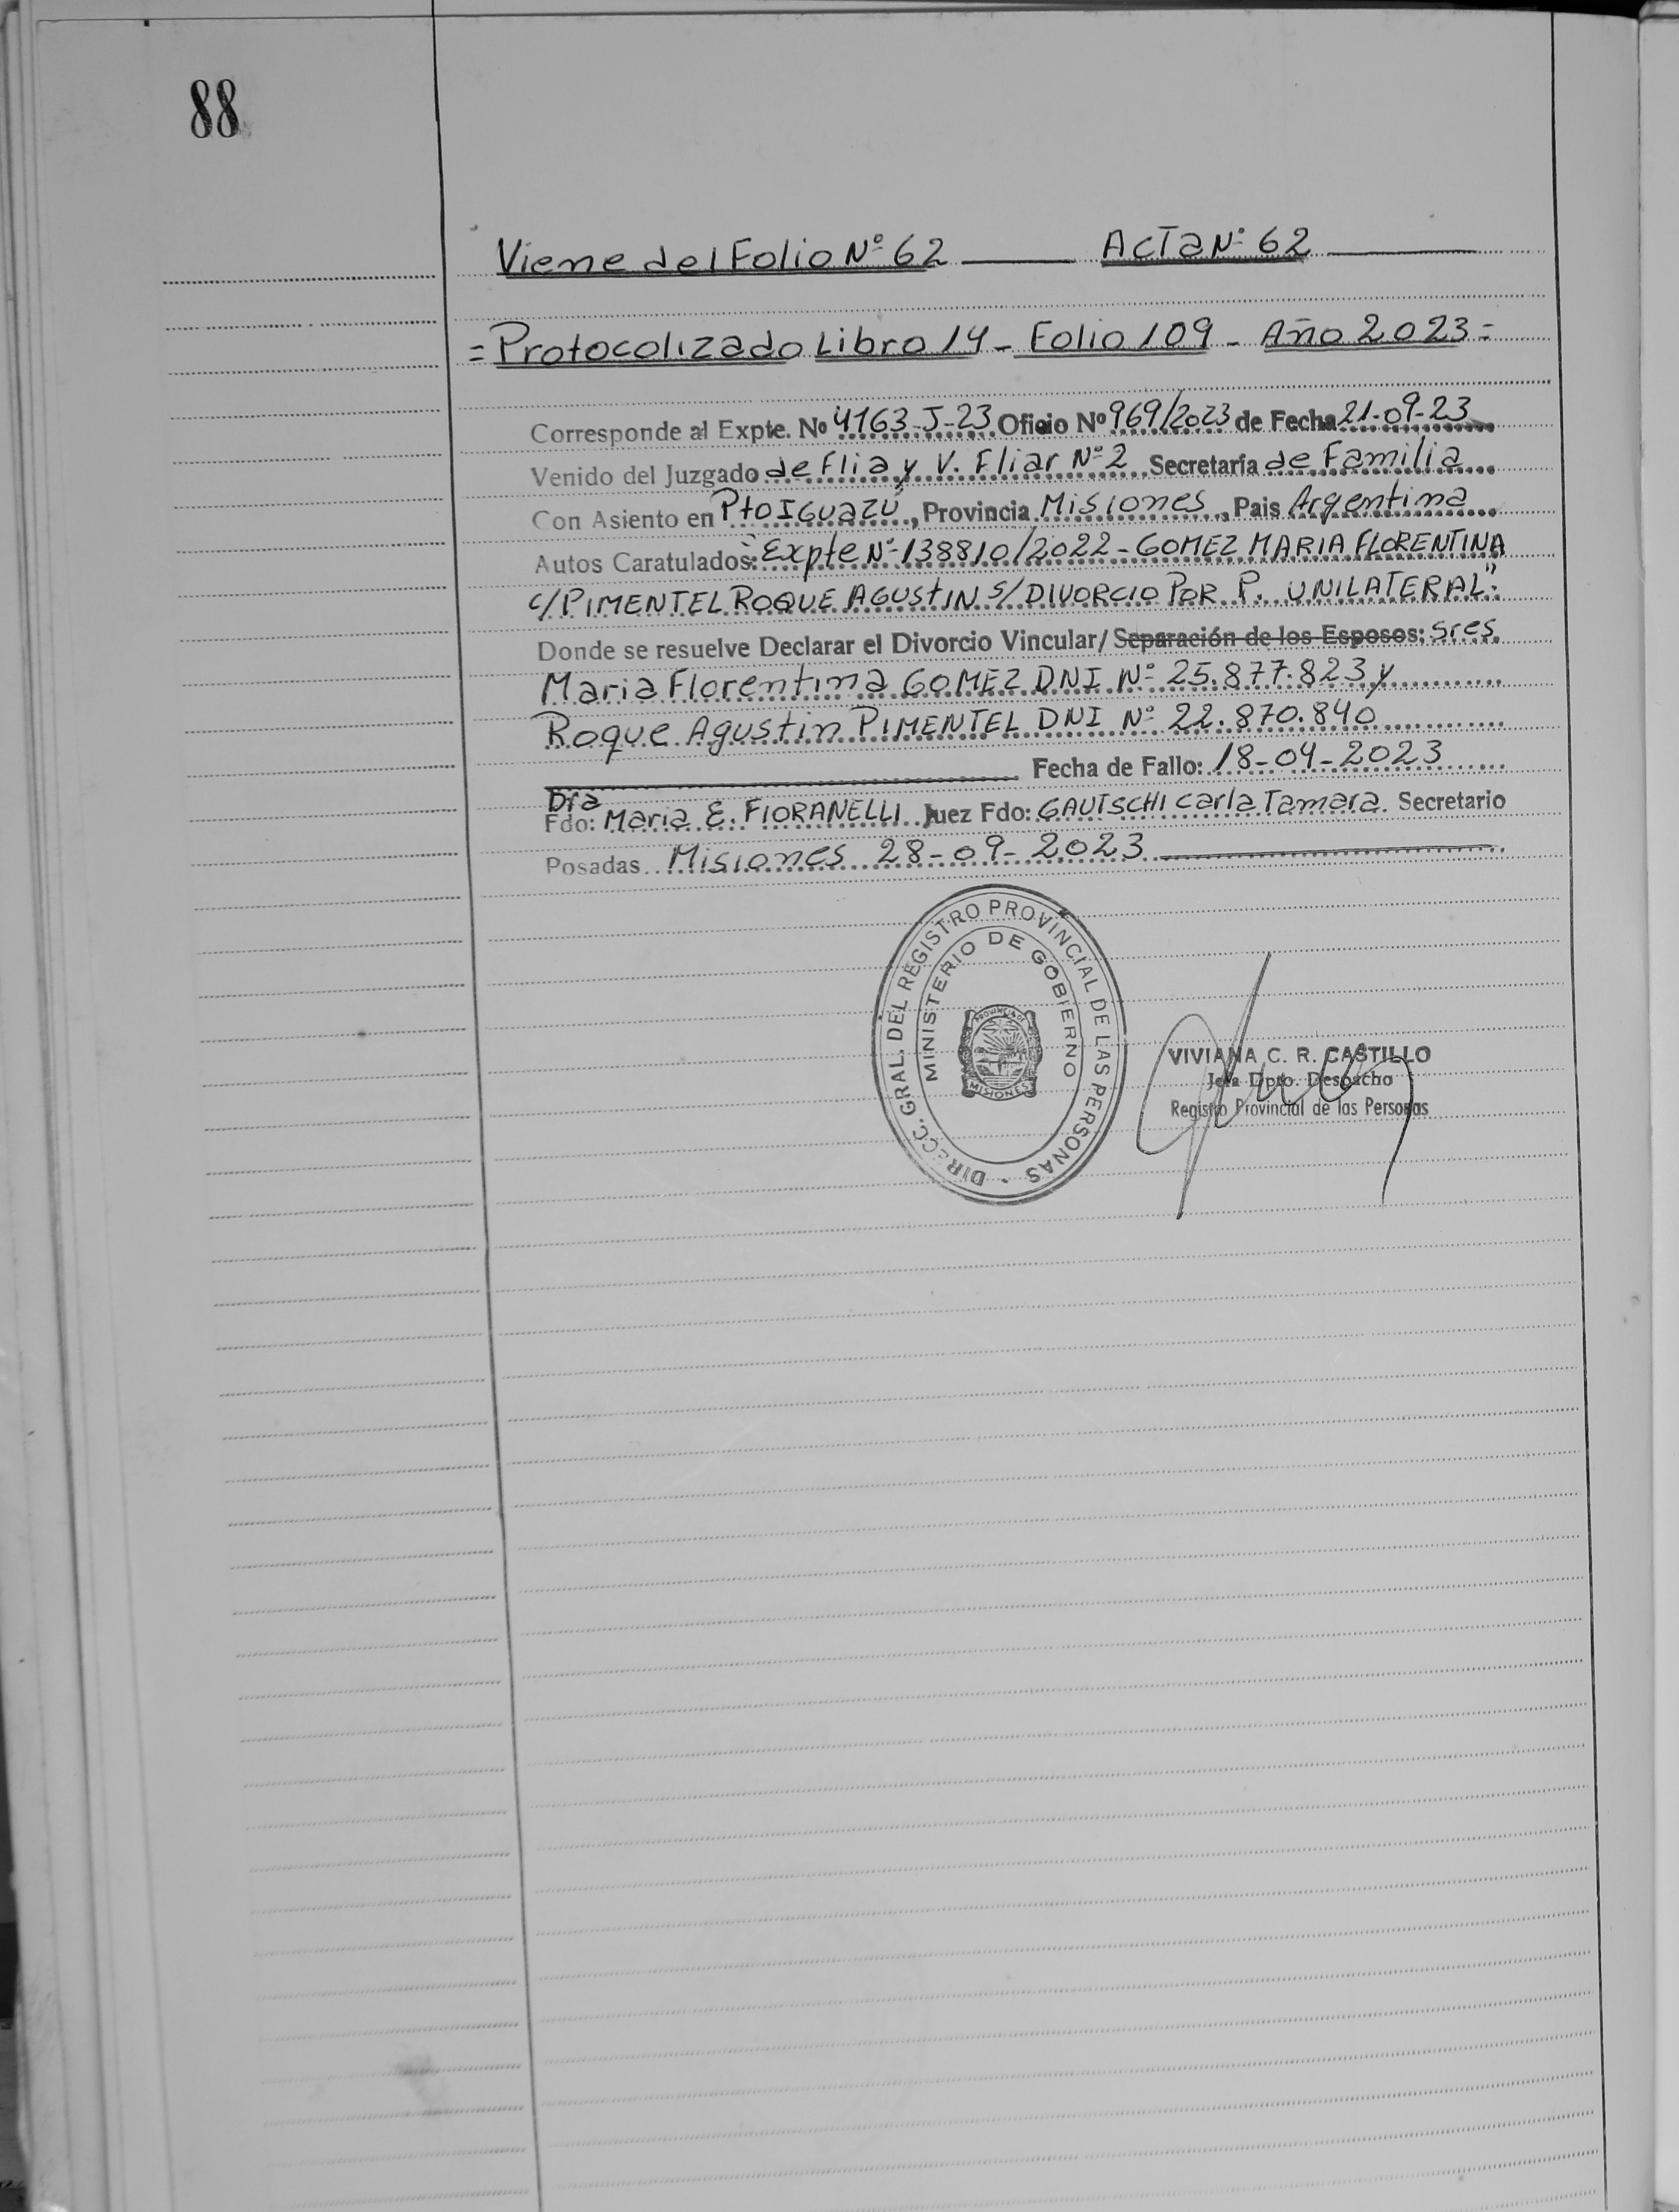 88
Viene del Folio Nº 62 Acta Nº 62
= Protocolizado Libro 14 - Folio 109 - Año 2023 =
Corresponde al Expte. Nº 4163-J-23 Oficio Nº 969/2023 de Fecha 21-09-23
Venido del Juzgado de Flia y V. Fliar Nº 2 Secretaría de Familia
Con Asiento en Pto IGUAZÚ, Provincia Misiones, Pais Argentina
Autos Caratulados: "Expte Nº 138810/2022 - GOMEZ MARIA FLORENTINA
c/ PIMENTEL ROQUE AGUSTIN s/ DIVORCIO POR P. UNILATERAL".
Donde se resuelve Declarar el Divorcio Vincular/ Separación de los Esposos: Sres
Maria Florentina GOMEZ DNI Nº 25.877.823 y
Roque Agustin PIMENTEL DNI Nº 22.870.840
Fecha de Fallo: 18-04-2023
Dra
Fdo: Maria E. FIORANELLI Juez Fdo: GAUTSCHI Carla Tamara. Secretario
Posadas Misiones 28-09-2023
DIRECC. GRAL. DEL REGISTRO PROVINCIAL DE LAS PERSONAS
MINISTERIO DE GOBIERNO
PROVINCIA DE
MISIONES
VIVIANA C. R. CASTILLO
Jefa Dpto. Despacho
Registro Provincial de las Personas